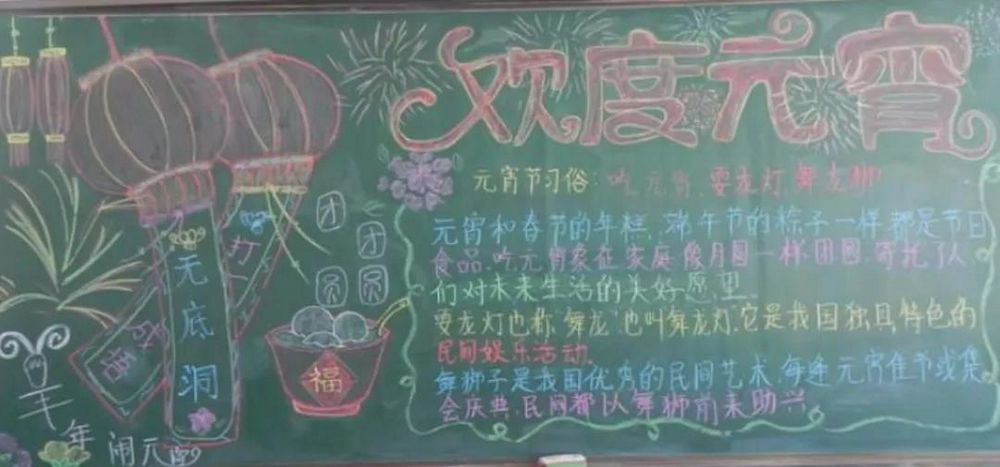 欢度元宵
元宵节习俗：吃元宵、耍龙灯、舞龙狮
元宵和春节的年糕，端午节的粽子一样都是节日
食品，吃元宵象征家庭像月圆一样团圆，寄托了人
们对未来生活的美好愿望
耍龙灯也称舞龙，也叫舞龙灯，它是我国独具特色的
民间娱乐活动
舞狮子是我国优秀的民间艺术，每逢元宵佳节或集
会庆典，民间都以舞狮前来助兴
团团圆圆
福
灯
无底洞
羊年闹元宵